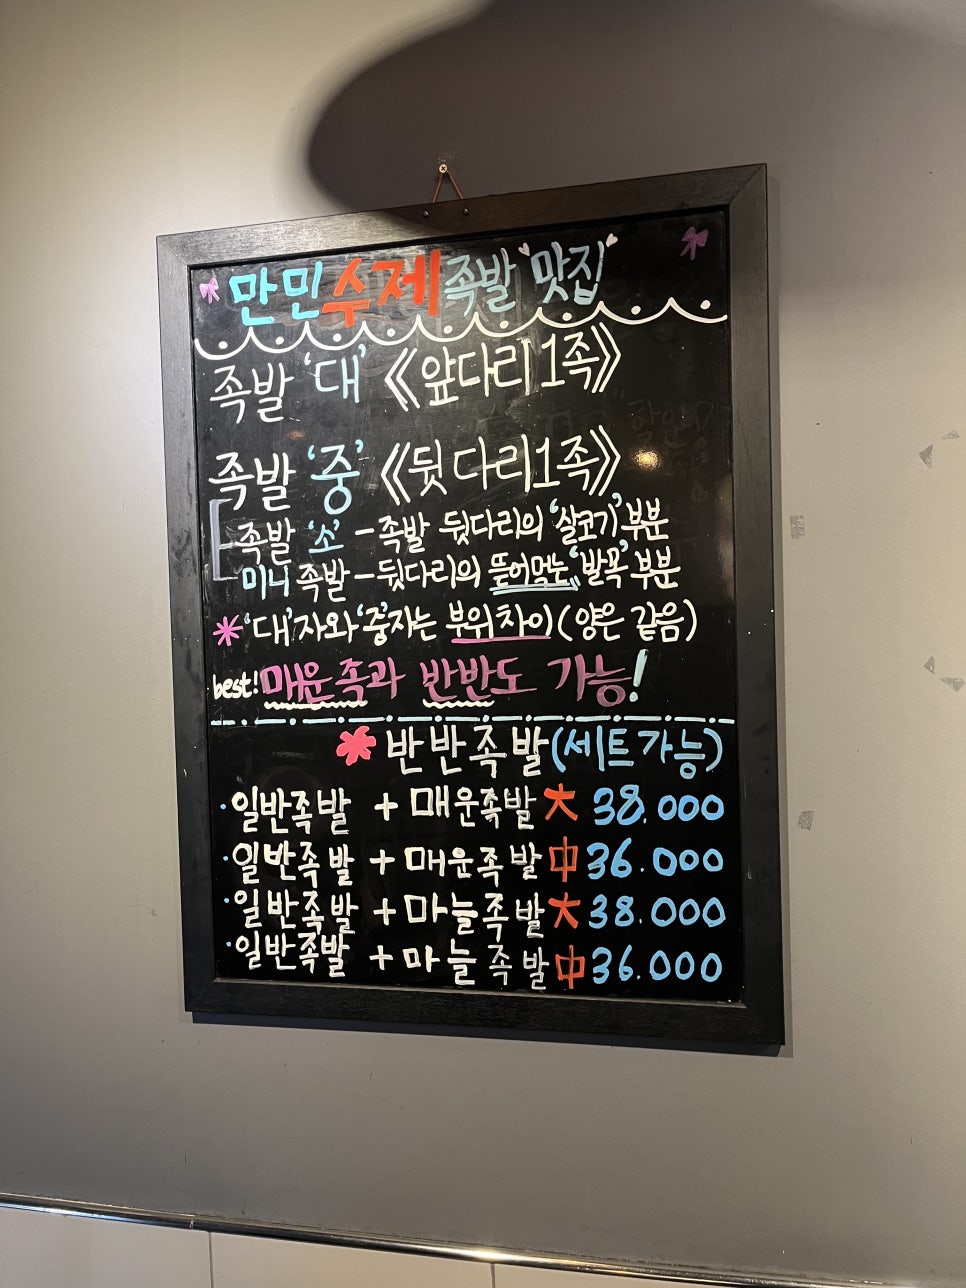 만민수제족발 '맛집'
족발 '대' 《앞다리1족》
족발 '중' 《뒷다리1족》
족발 '소' - 족발 뒷다리의 '살코기' 부분
미니 족발 - 뒷다리의 뜯어먹는 '발목' 부분
* '대'자와 '중'자는 부위차이 (양은 같음)
best! 매운족과 반반도 가능!
반반족발 (세트가능)
· 일반족발 + 매운족발 大 38.000
· 일반족발 + 매운족발 中 36.000
· 일반족발 + 마늘족발 大 38.000
· 일반족발 + 마늘족발 中 36.000